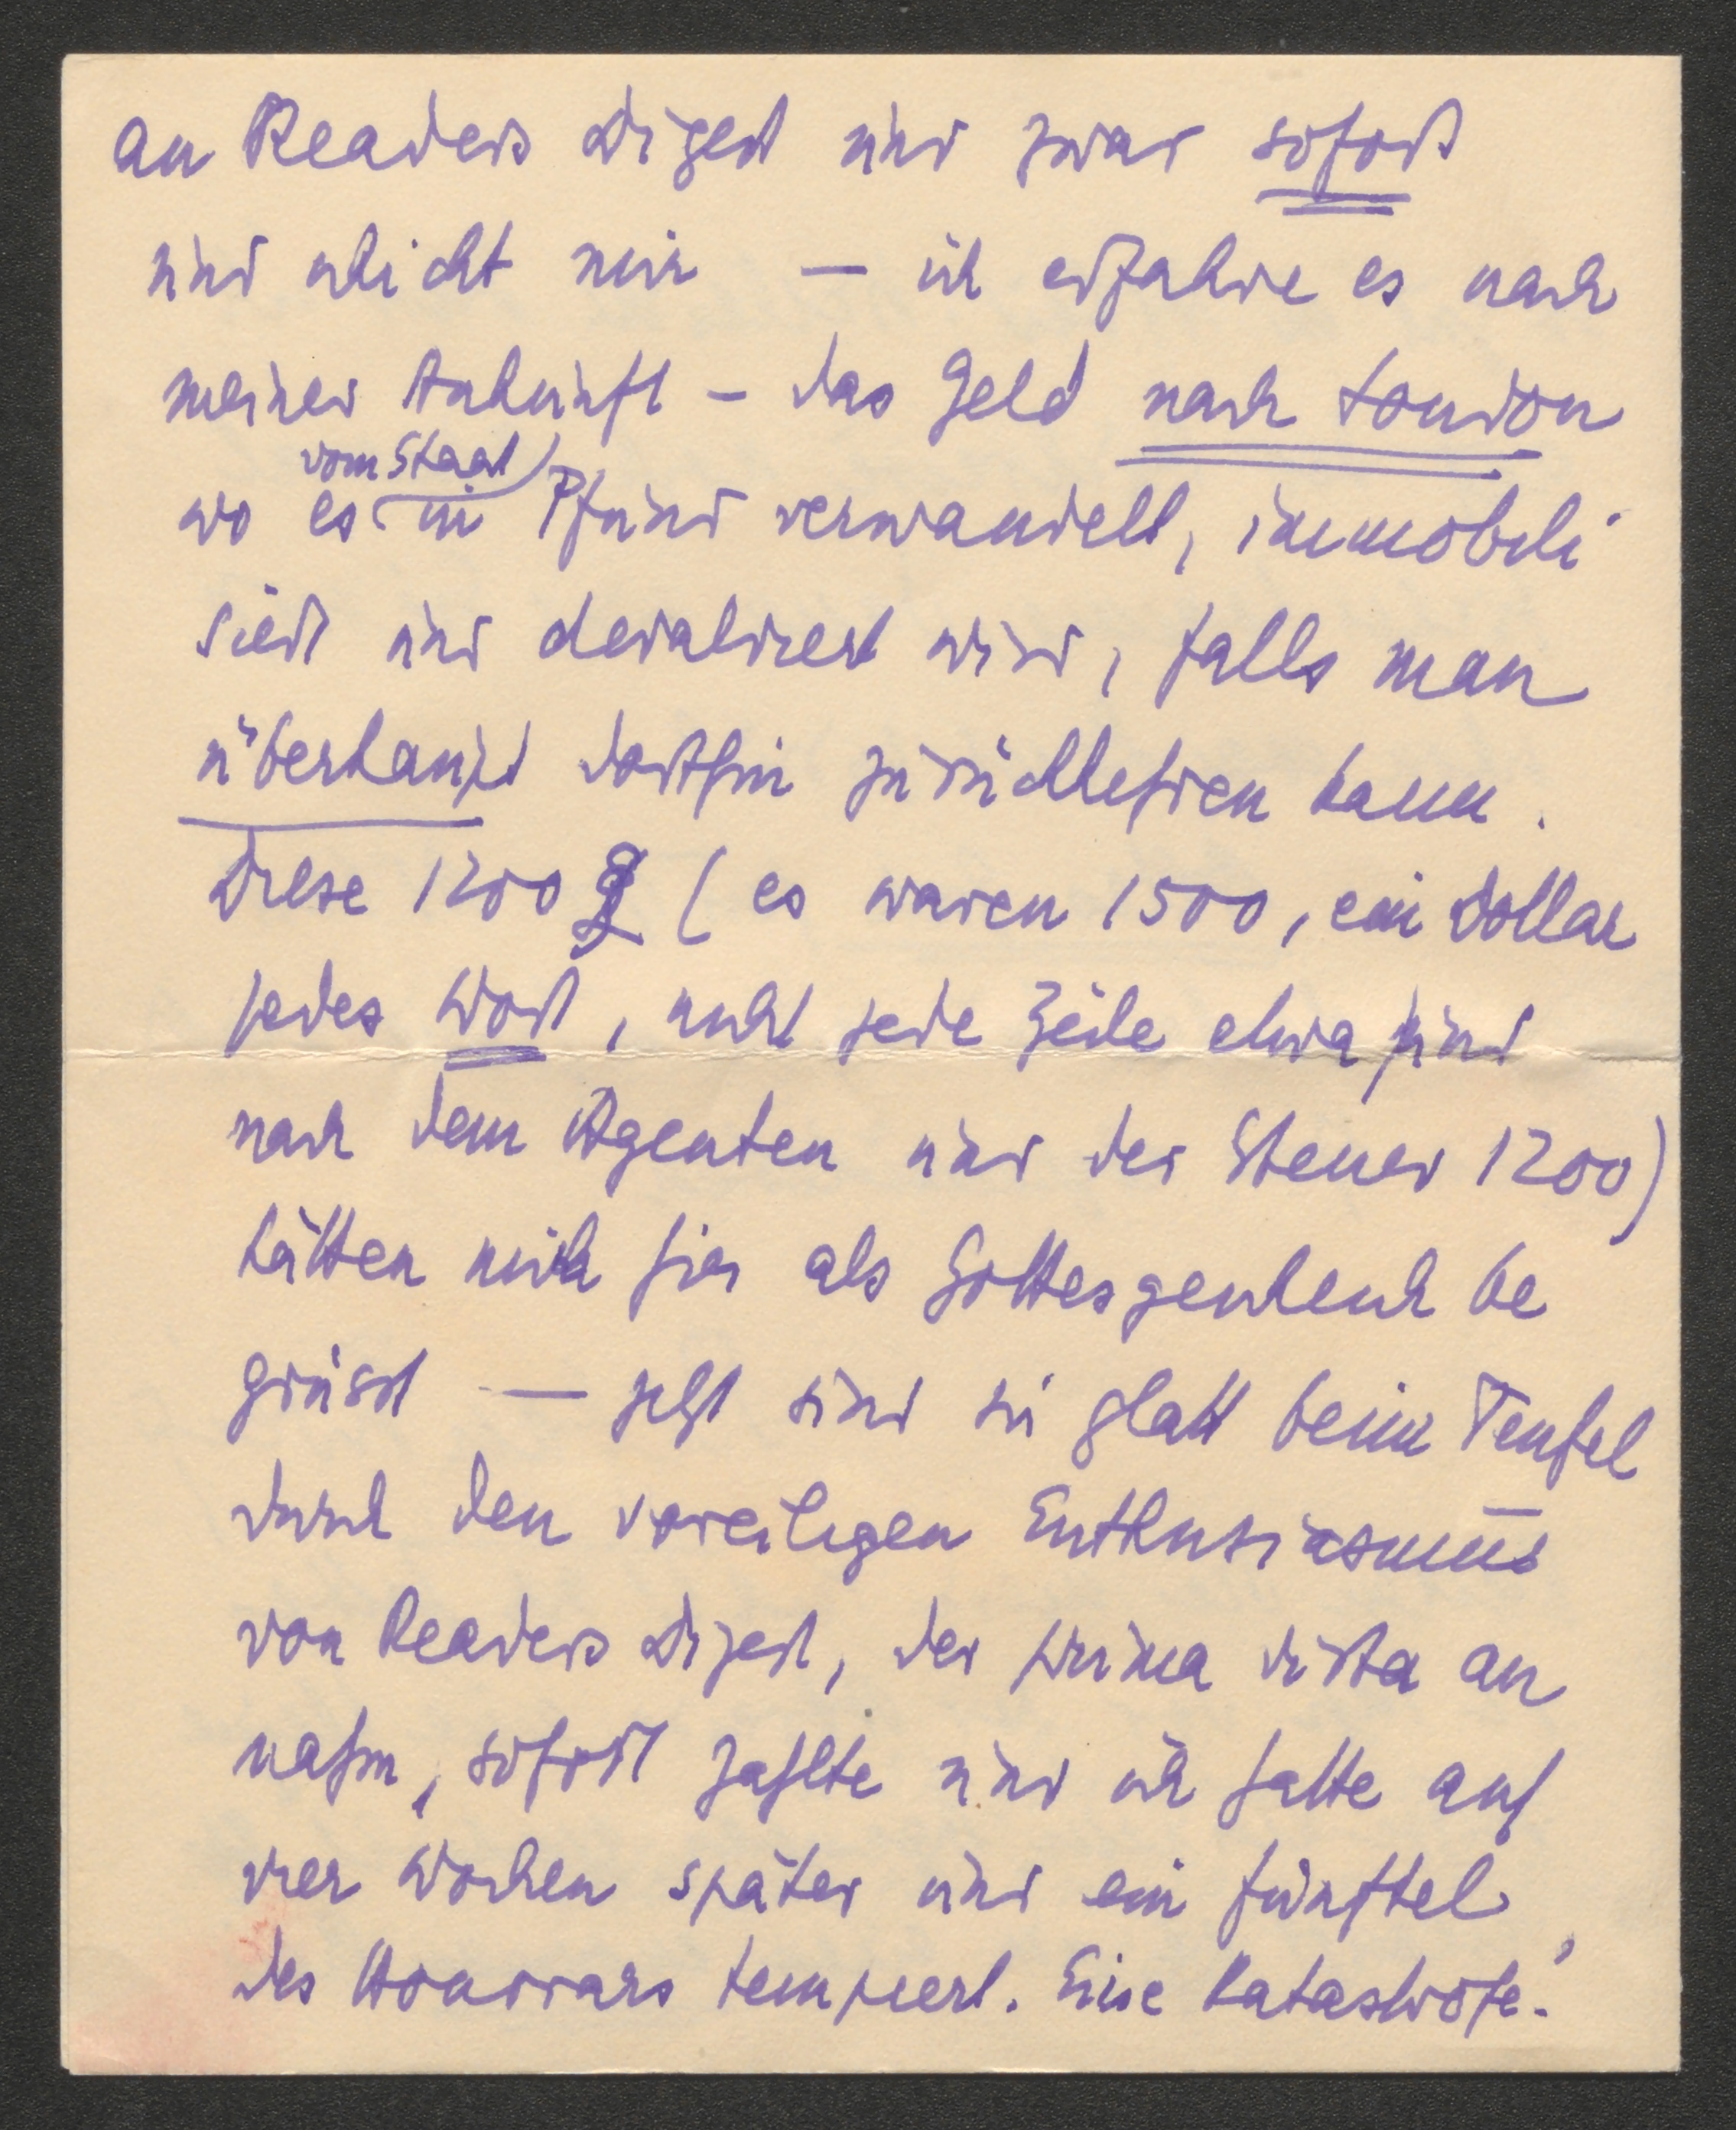 an Readers Digest und zwar sofort
und schickt mir — ich erfahre es nach
meiner Ankunft – das Geld nach London
vom Staat
wo es in Pfund verwandelt, immobili
siert und devalviert wird, falls man
überhaupt dorthin zurückkehren kann.
Diese 1200 $ ( es waren 1500, ein Dollar
jedes Wort, nicht jede Zeile etwa und
nach dem Agenten und der Steuer 1200)
hätten mich hier als Gottesgeschenk be
grüsst — jetzt sind sie glatt beim Teufel
durch den voreiligen Enthusiasmus
von Readers Digest, der prima vista an
nahm, sofort zahlte und ich hatte auf
vier Wochen später und ein fünftel
des Honorars tempiert. Eine Katastrofe!